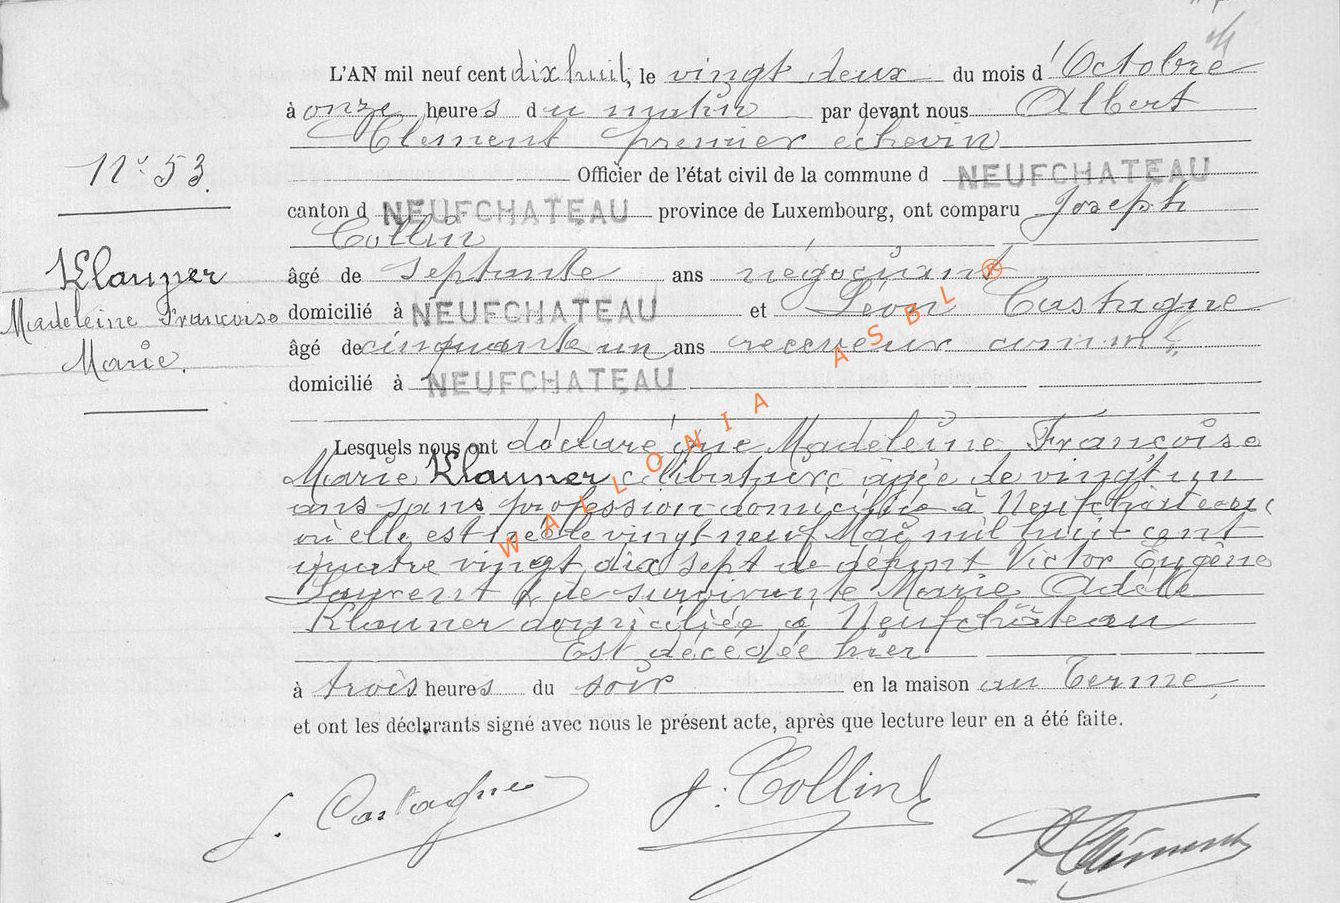 L'AN mil neuf cent dix huit, le vingt deux du mois d'Octobre
à onze heures du matin par devant nous Albert
Clement premier échevin
N° 53.
Officier de l'état civil de la commune d NEUFCHATEAU
canton d NEUFCHATEAU province de Luxembourg, ont comparu Joseph
Collin
Klauner
Madeleine Françoise
Marie.
âgé de septante ans négociant
domicilié à NEUFCHATEAU et Léon Castagne
âgé de cinquante un ans receveur comm^l
domicilié à NEUFCHATEAU
Lesquels nous ont déclaré que Madeleine Françoise
Marie Klauner célibataire âgée de vingt un
ans sans profession domiciliée à Neufchâteau
où elle est née le vingt-neuf Mai mil huit cent
quatre vingt dix sept de défunt Victor Eugène
Laurent & de survivante Marie Adèle
Klauner domiciliée à Neufchâteau
Est décédée hier
à trois heures du soir en la maison au Terme
et ont les déclarants signé avec nous le présent acte, après que lecture leur en a été faite.
WALLONIA ASBL ®
J. Collin
Clément